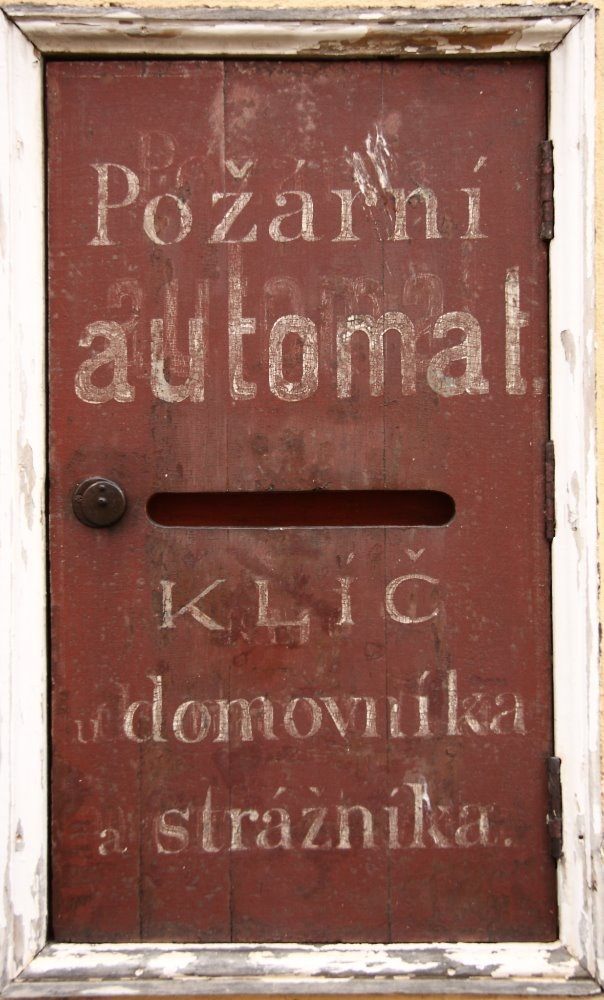 Požární
automat.
KLÍČ
u domovníka
a strážníka.